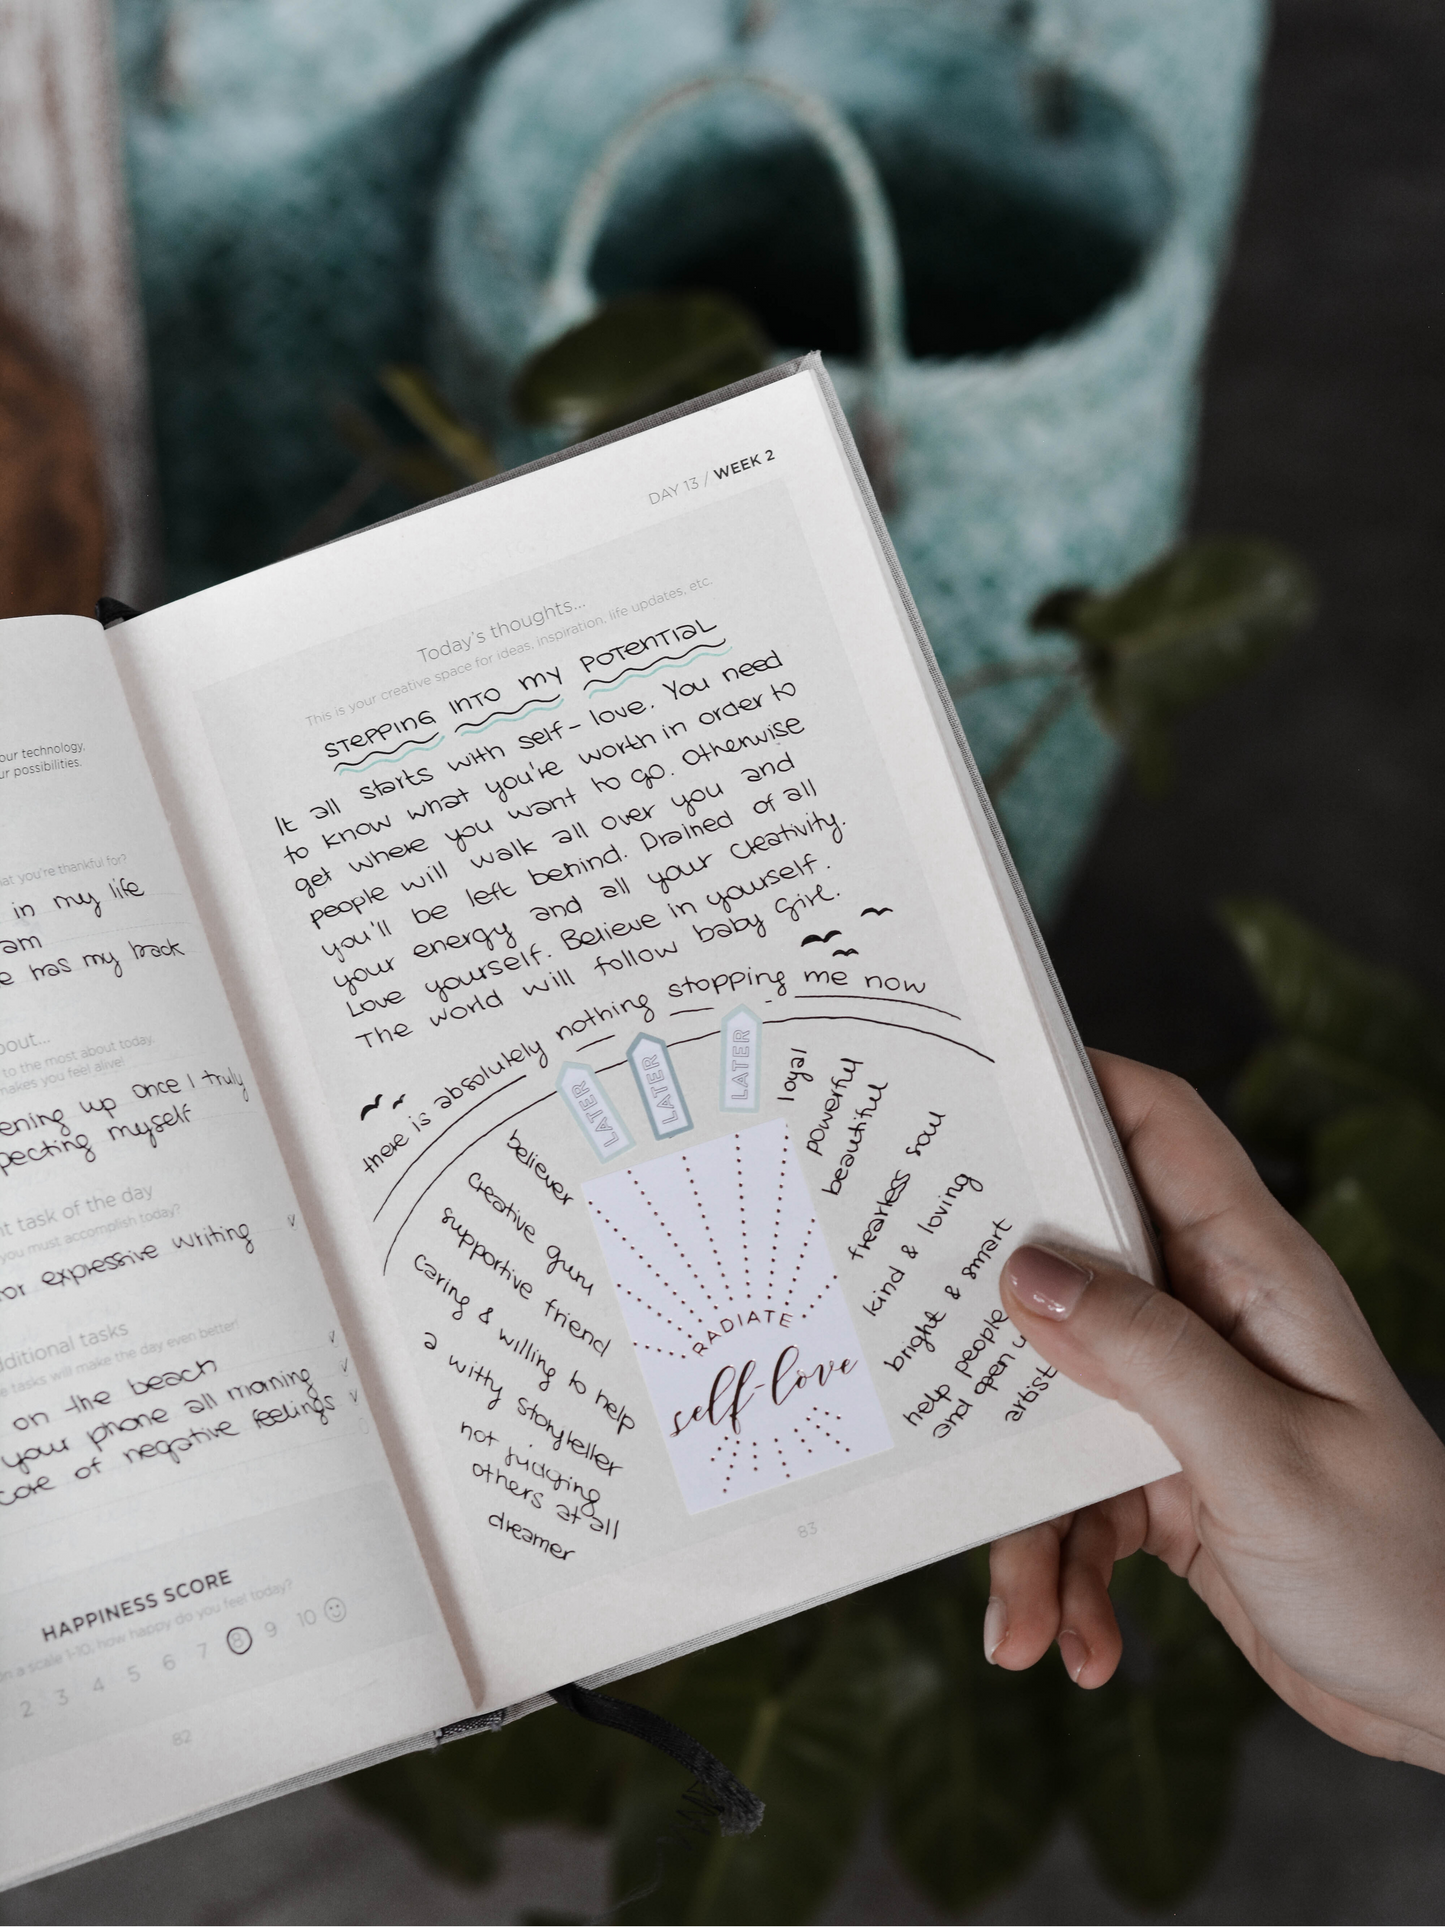 our technology,
ur possibilities.
hat you're thankful for?
in my life
am
e has my back
bout...
to the most about today,
makes you feel alive!
ening up once I truly
pecting myself
nt task of the day
you must accomplish today?
or expressive writing
dditional tasks
e tasks will make the day even better!
on the beach
your phone all morning
care of negative feelings
HAPPINESS SCORE
on a scale 1-10, how happy do you feel today?
2 3 4 5 6 7 8 9 10
82
DAY 13 / WEEK 2
Today's thoughts...
This is your creative space for ideas, inspiration, life updates, etc.
STEPPING INTO MY POTENTIAL
It all starts with self-love. You need
to know what you're worth in order to
get where you want to go. Otherwise
people will walk all over you and
you'll be left behind. Drained of all
your energy and all your creativity.
Love yourself. Believe in yourself.
The world will follow baby girl.
there is absolutely nothing stopping me now
LATER
LATER
LATER
believer
creative guru
supportive friend
caring & willing to help
a witty storyteller
not judging
others at all
dreamer
RADIATE
self-love
loyal
powerful
beautiful
frearless soul
kind & loving
bright & smart
help people
and open u
artist
83